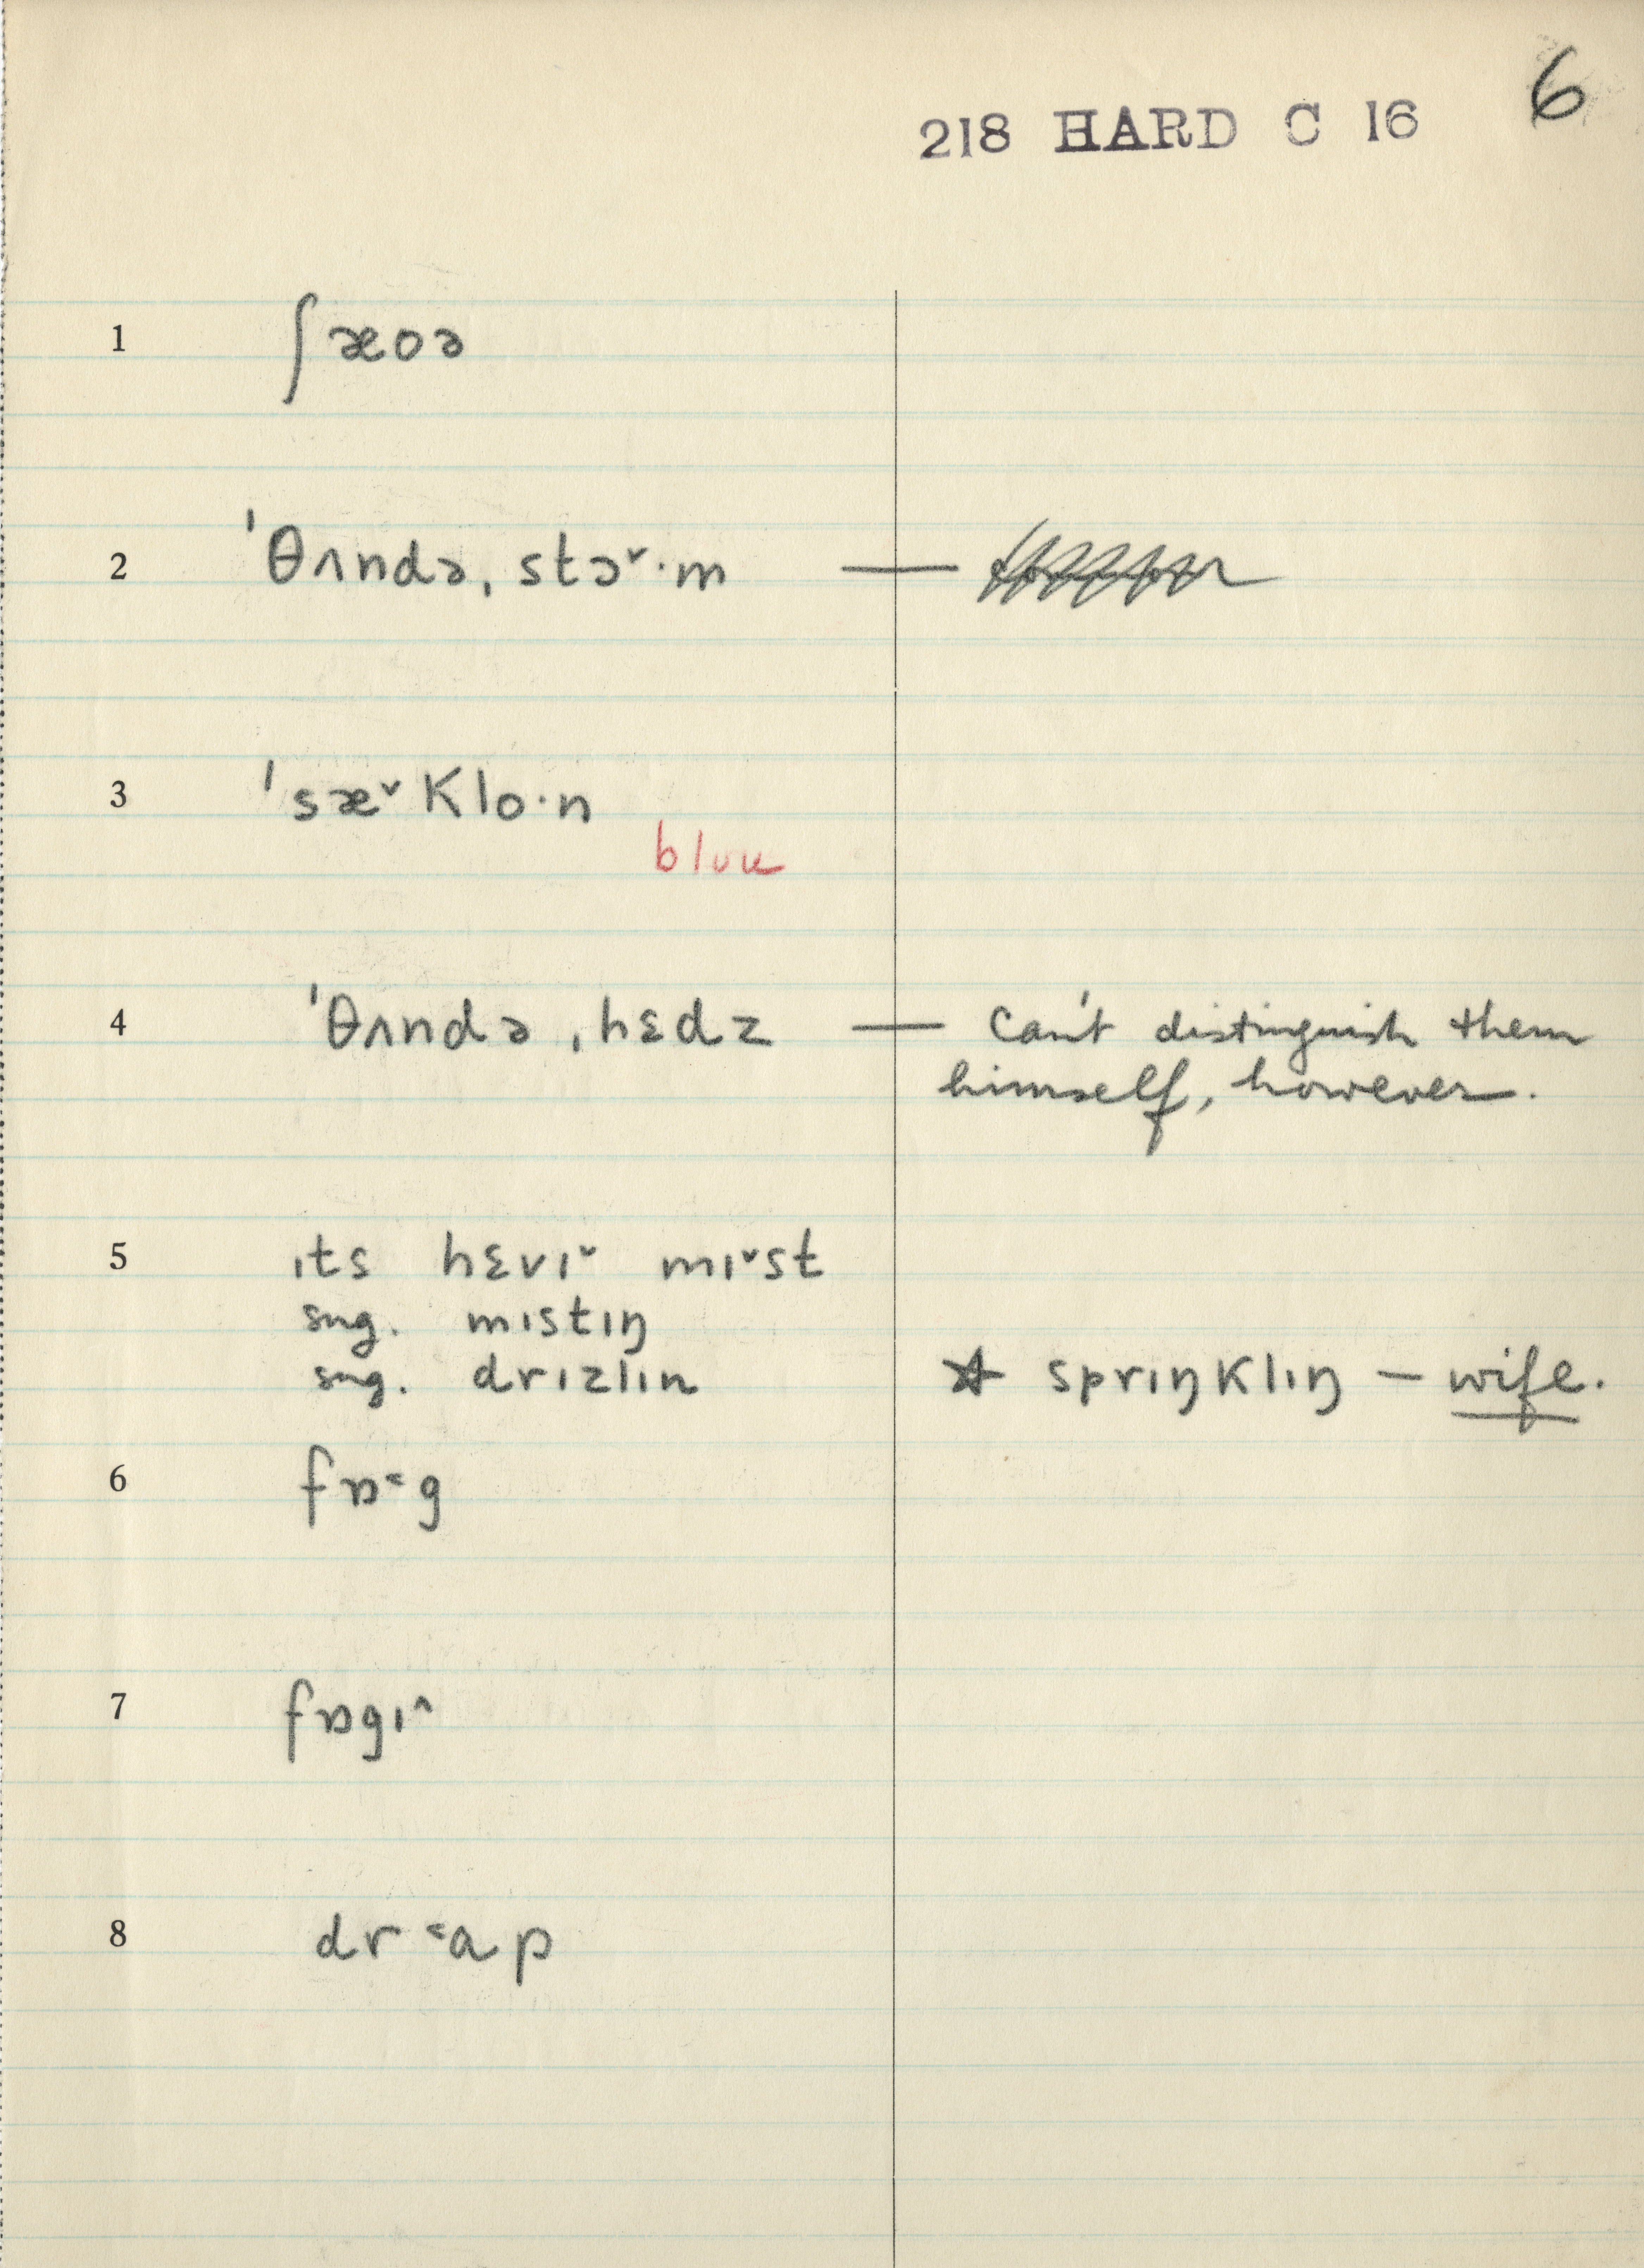 6
218 HARD C 16
1 ʃæoə
2 ˈθʌndə, stɔ˅·m —
3 ˈsæ˅klo·n
blue
4 ˈθʌndə ˌhɛdz — Can't distinguish them
himself, however.
5 ɪts hɛvɪ˅ mɪ˅st
sug. mɪstɪŋ
sug. drɪzlɪn ☆ sprɪŋklɪŋ — wife.
6 fɒ˂g
7 fɒgɪ˄
8 dr˂ɑp